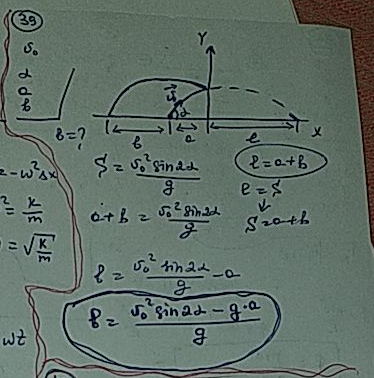 39
v₀
α
a
b
b = ?
Y
v⃗₀
α
b a ℓ X
S = v₀² sin2α / g
ℓ = a+b
ℓ = S
a+b = v₀² sin2α / g
S = a+b
b = v₀² sin2α / g - a
b = v₀² sin2α - g·a / g
= -ω²sx
² = k/m
= √k/m
ωt